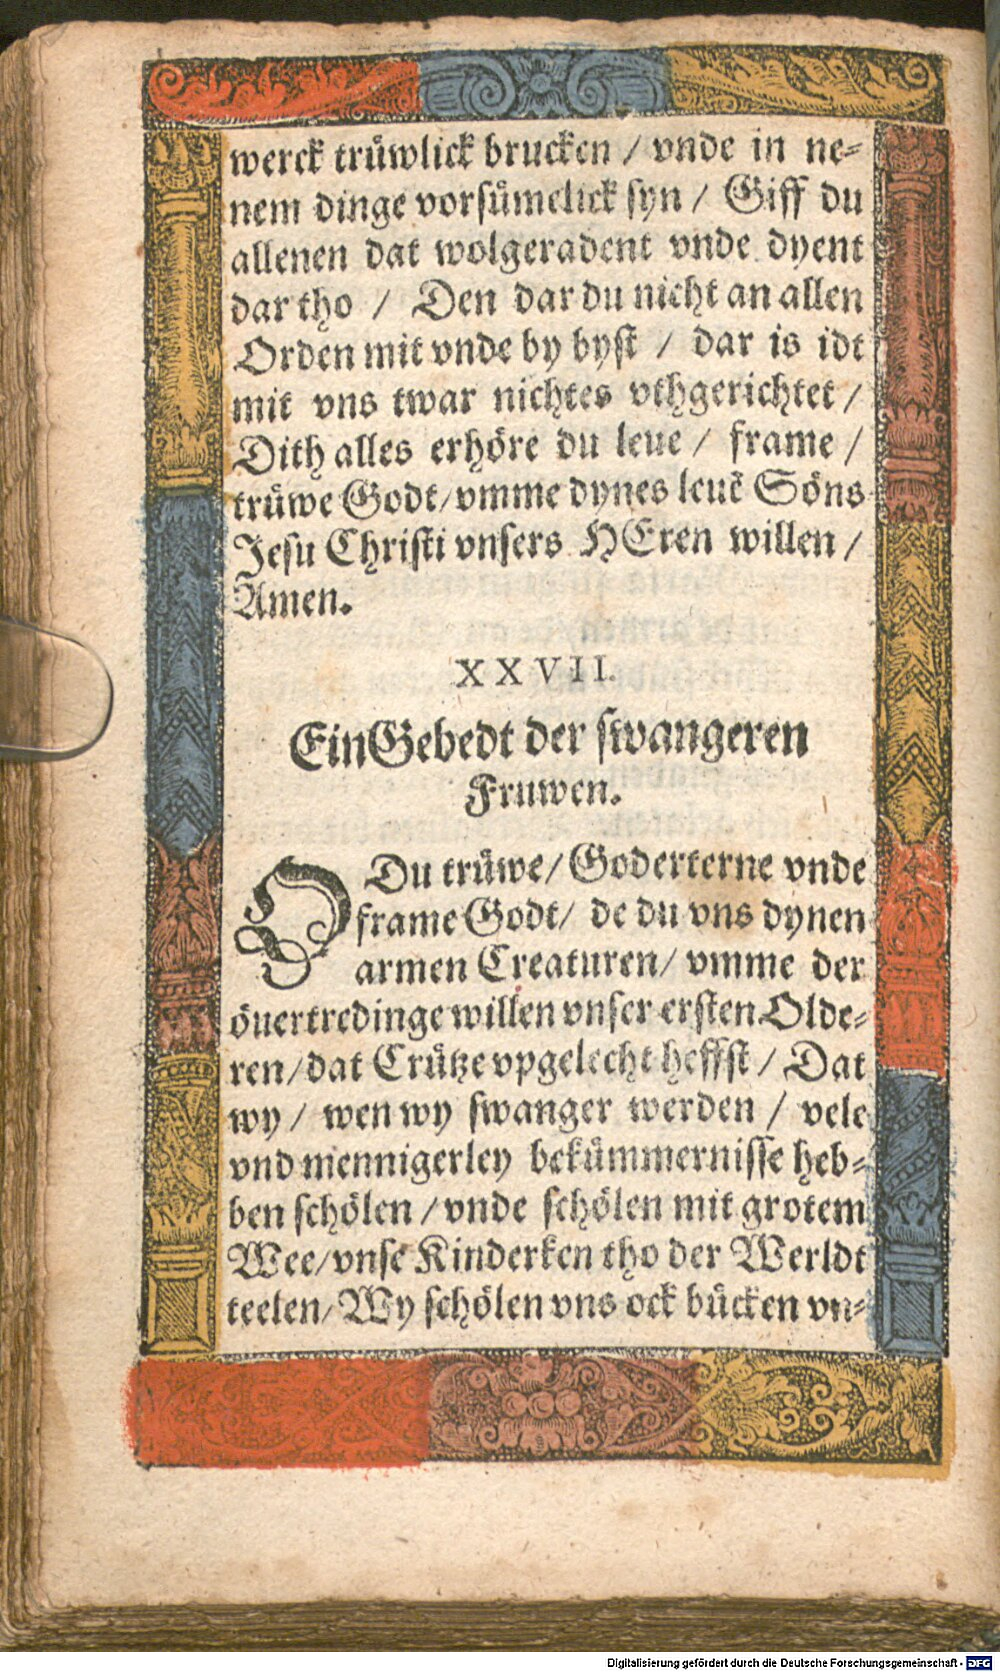 werck trüwlick brucken / vnde in ne⸗
nem dinge vorsümelick syn / Giff du
allenen dat wolgeradent vnde dyent
dar tho / Den dar du nicht an allen
Orden mit vnde by byst / dar is idt
mit vns twar nichtes vthgerichtet /
Dith alles erhöre du leue / frame /
trüwe Godt / vmme dynes leuē Söns
Jesu Christi vnsers HEren willen /
Amen.
XXVII.
Ein Gebedt der swangeren
Fruwen.
O Du trüwe / Goderterne vnde
frame Godt / de du vns dynen
armen Creaturen / vmme der
öuertredinge willen vnser ersten Olde⸗
ren / dat Crütze vpgelecht heffst / Dat
wy / wen wy swanger werden / vele
vnd mennigerley bekümmernisse heb⸗
ben schölen / vnde schölen mit grotem
Wee / vnse Kinderken tho der Werldt
teelen / Wy schölen vns ock bücken vn⸗
Digitalisierung gefördert durch die Deutsche Forschungsgemeinschaft - DFG